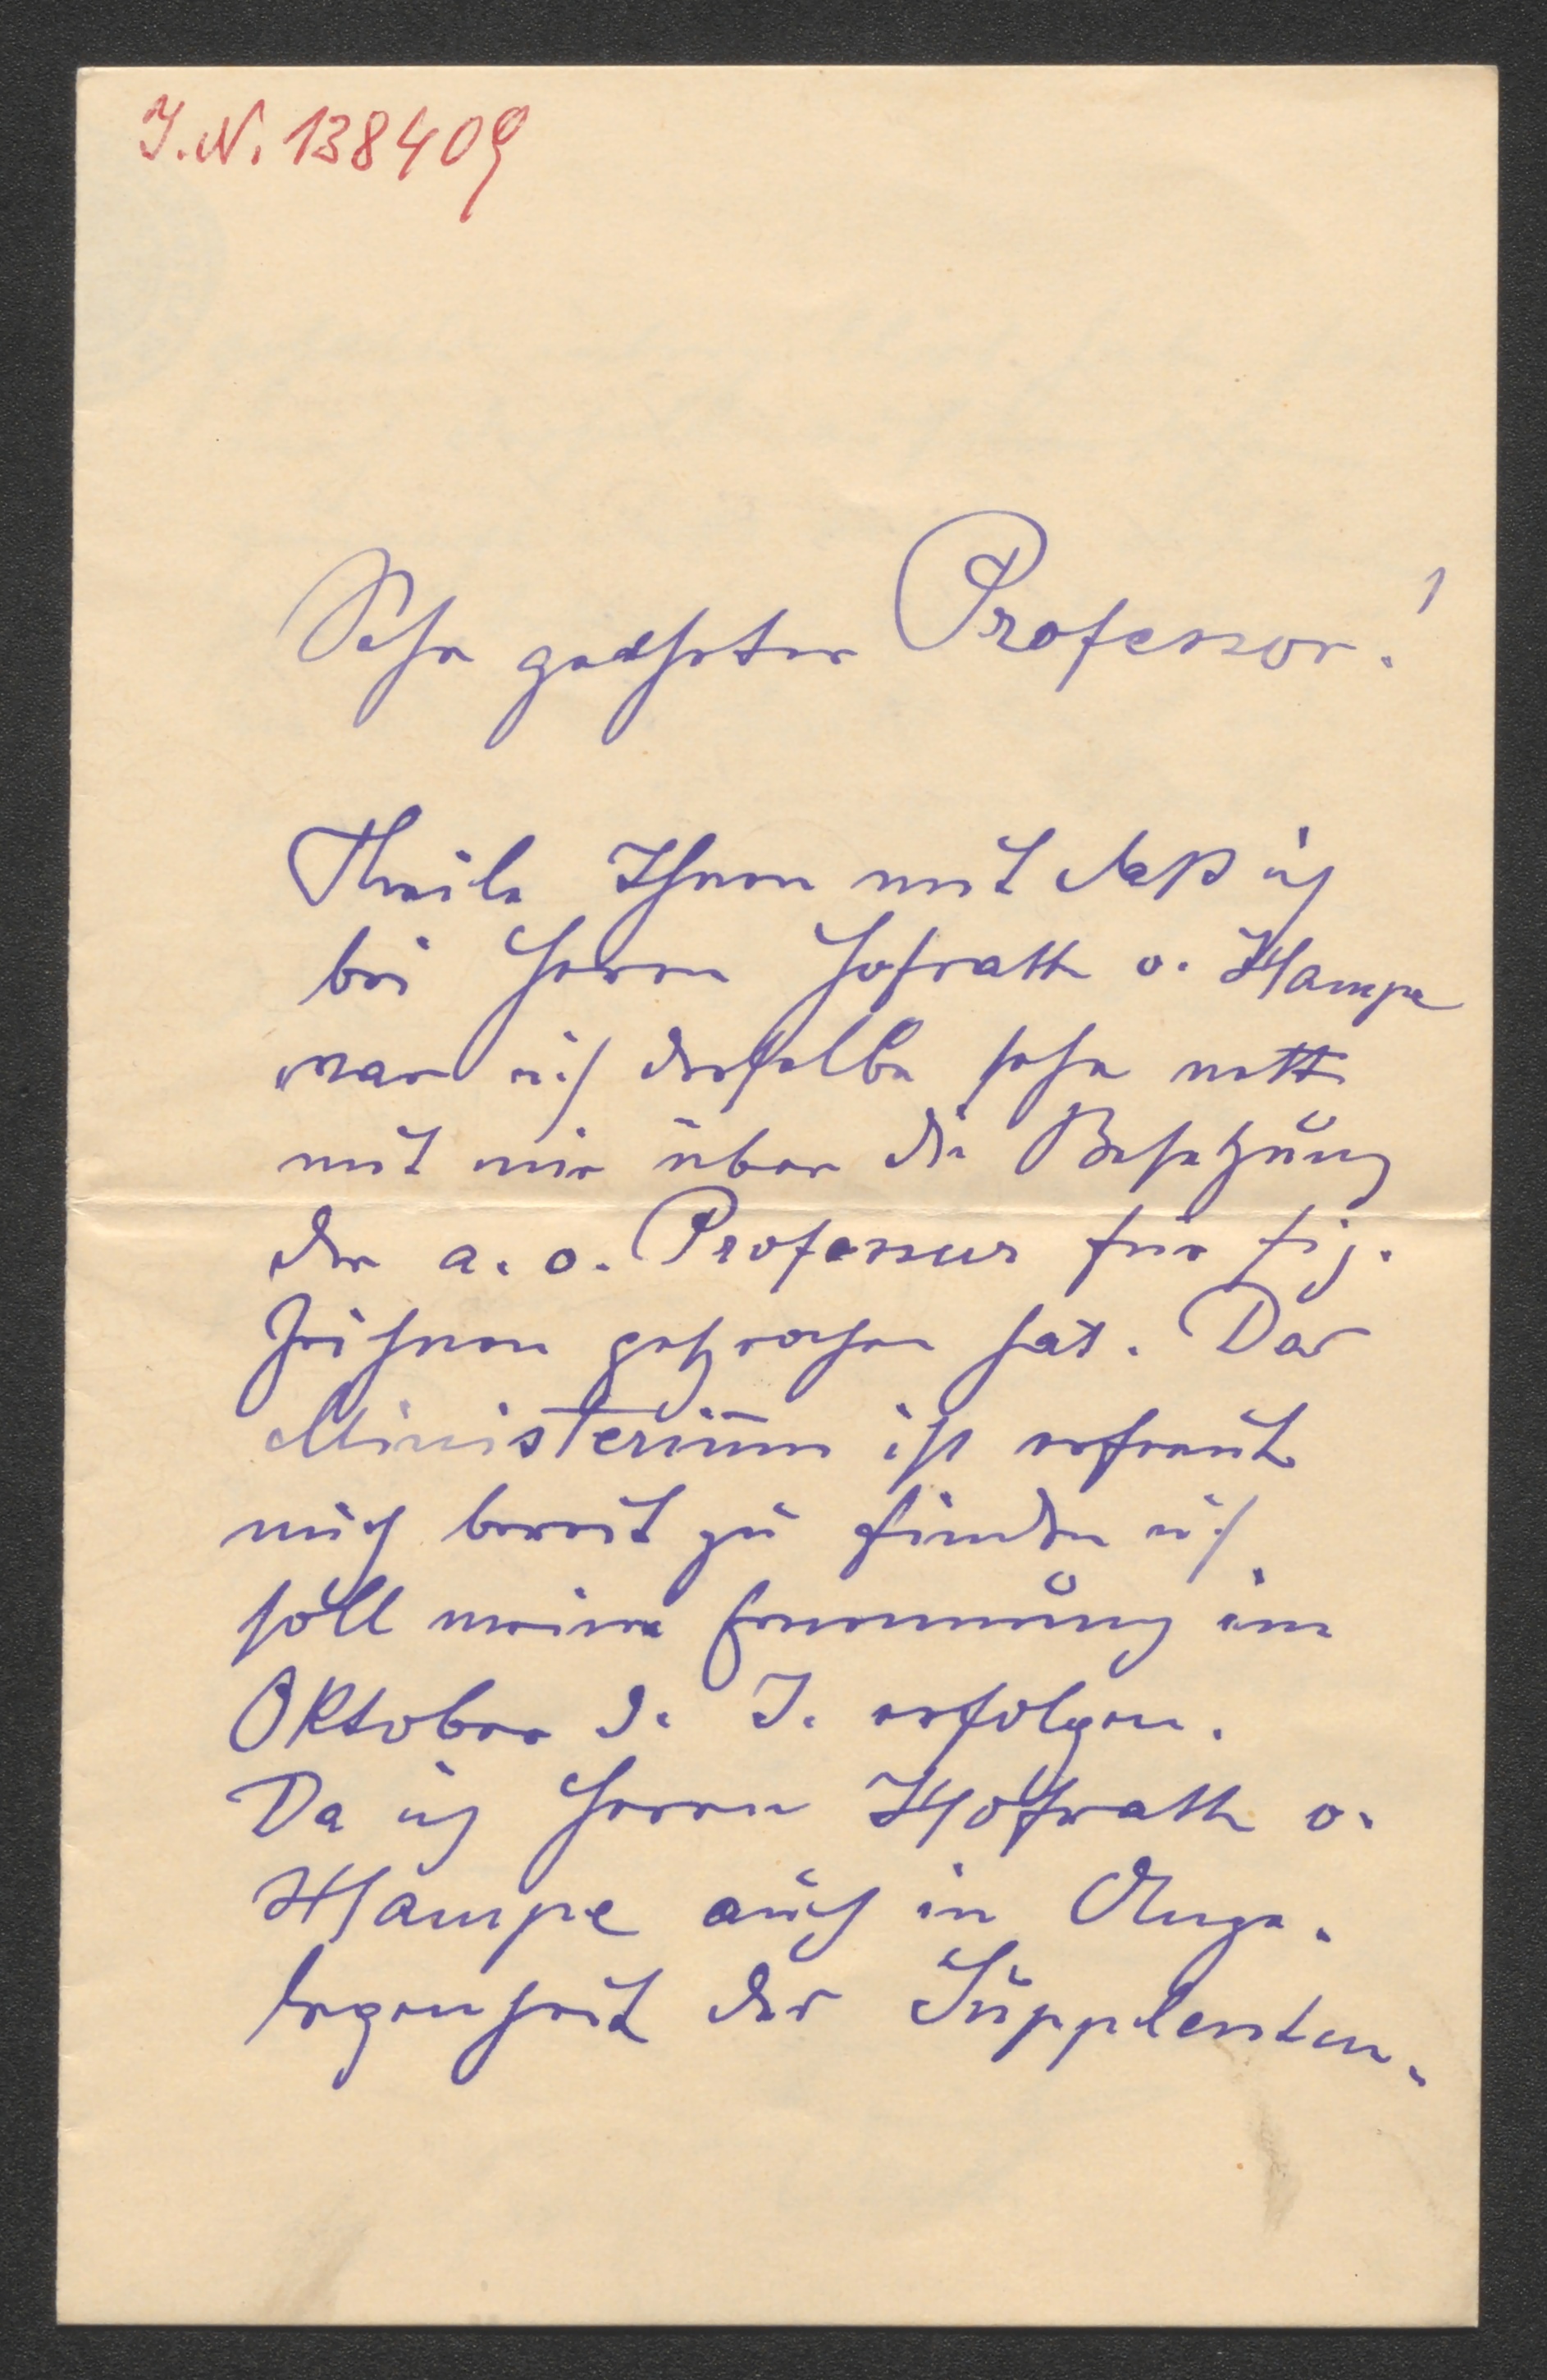 I.N. 138409
Sehr geehrter Professor!
Theile Ihnen mit daß ich
bei Herrn Hofrath v. Hampe
war u. derselbe sehr nett
mit mir über die Besetzung
der a. o. Professur für fig.
Zeichnen gesprochen hat. Das
Ministerium ist erfreut
mich bereit zu finden u.
soll meine Ernennung im
Oktober d. J. erfolgen.
Da ich Herrn Hofrath v.
Hampe auch in Ange-
legenheit der Supplenten-